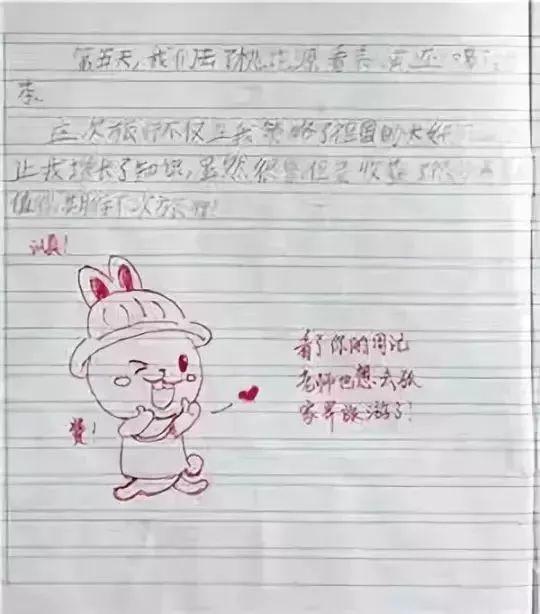 第五天，我们去了桃花源看表演还喝了
李。
这次旅行不仅让我领略了祖国的大好
让我增长了知识，虽然很累但是收获了
值得，期待下次旅行！
认真！
看了你的周记
老师也想去张
家界旅游了！
赞！